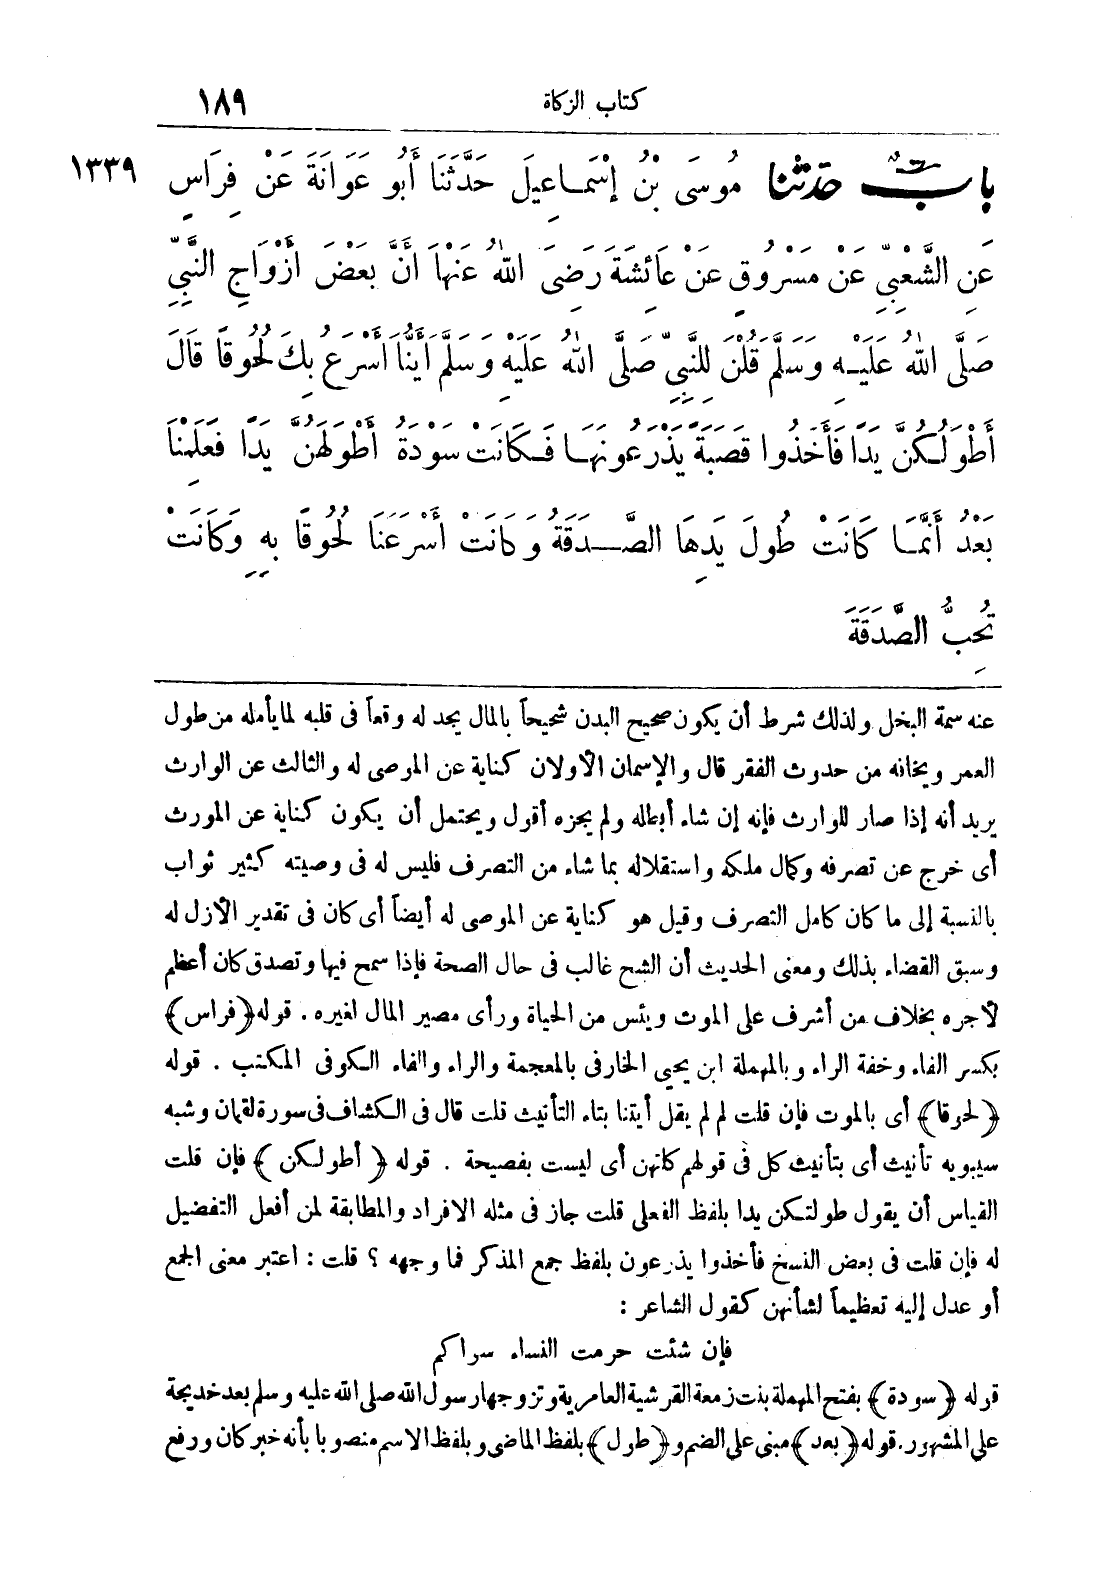 كتاب الزكاة ١٨٩
١٣٣٩ بابٌ حدثنا مُوسَى بْنُ إِسْمَاعِيلَ حَدَّثَنَا أَبُو عَوَانَةَ عَنْ فِرَاسٍ
عَنِ الشَّعْبِيِّ عَنْ مَسْرُوقٍ عَنْ عَائِشَةَ رَضِيَ اللهُ عَنْهَا أَنَّ بَعْضَ أَزْوَاجِ النَّبِيِّ
صَلَّى اللهُ عَلَيْهِ وَسَلَّمَ قُلْنَ لِلنَّبِيِّ صَلَّى اللهُ عَلَيْهِ وَسَلَّمَ أَيُّنَا أَسْرَعُ بِكَ لُحُوقًا قَالَ
أَطْوَلُكُنَّ يَدًا فَأَخَذُوا قَصَبَةً يَذْرَعُونَهَا فَكَانَتْ سَوْدَةُ أَطْوَلَهُنَّ يَدًا فَعَلِمْنَا
بَعْدُ أَنَّمَا كَانَتْ طُولَ يَدِهَا الصَّدَقَةُ وَكَانَتْ أَسْرَعَنَا لُحُوقًا بِهِ وَكَانَتْ
تُحِبُّ الصَّدَقَةَ
عنه سمة البخل ولذلك شرط أن يكون صحيح البدن شحيحاً بالمال يجد له وقعاً فى قلبه لما يأمله من طول
العمر ويخافه من حدوث الفقر قال والإسمان الأولان كناية عن الموصى له والثالث عن الوارث
يريد أنه إذا صار للوارث فإنه إن شاء أبطله ولم يجزه أقول ويحتمل أن يكون كناية عن المورث
أى خرج عن تصرفه وكمال ملكه واستقلاله بما شاء من التصرف فليس له فى وصيته كثير ثواب
بالنسبة إلى ما كان كامل التصرف وقيل هو كناية عن الموصى له أيضاً أى كان فى تقدير الأزل له
وسبق القضاء بذلك ومعنى الحديث أن الشح غالب فى حال الصحة فإذا سمح فيها وتصدق كان أعظم
لأجره بخلاف من أشرف على الموت ويئس من الحياة ورأى مصير المال لغيره . قوله ﴿فراس﴾
بكسر الفاء وخفة الراء وبالمهملة ابن يحيى الخارفى بالمعجمة والراء والفاء الكوفى المكتب . قوله
﴿لحوقا﴾ أى بالموت فإن قلت لم لم يقل أيتنا بتاء التأنيث قلت قال فى الكشاف فى سورة لقمان وشبه
سيبويه تأنيث أى بتأنيث كل فى قولهم كلتهن أى ليست بفصيحة . قوله ﴿أطولكن﴾ فإن قلت
القياس أن يقول طولتكن يدا بلفظ الفعلى قلت جاز فى مثله الافراد والمطابقة لمن أفعل التفضيل
له فإن قلت فى بعض النسخ فأخذوا يذرعون بلفظ جمع المذكر فما وجهه ؟ قلت : اعتبر معنى الجمع
أو عدل إليه تعظيماً لشأنهن كقول الشاعر :
فإن شئت حرمت النساء سواكم
قوله ﴿سودة﴾ بفتح المهملة بنت زمعة القرشية العامرية وتزوجها رسول الله صلى الله عليه وسلم بعد خديجة
على المشهور. قوله ﴿بعد﴾ مبنى على الضم و ﴿طول﴾ بلفظ الماضى وبلفظ الاسم منصوبا بأنه خبر كان ورفع